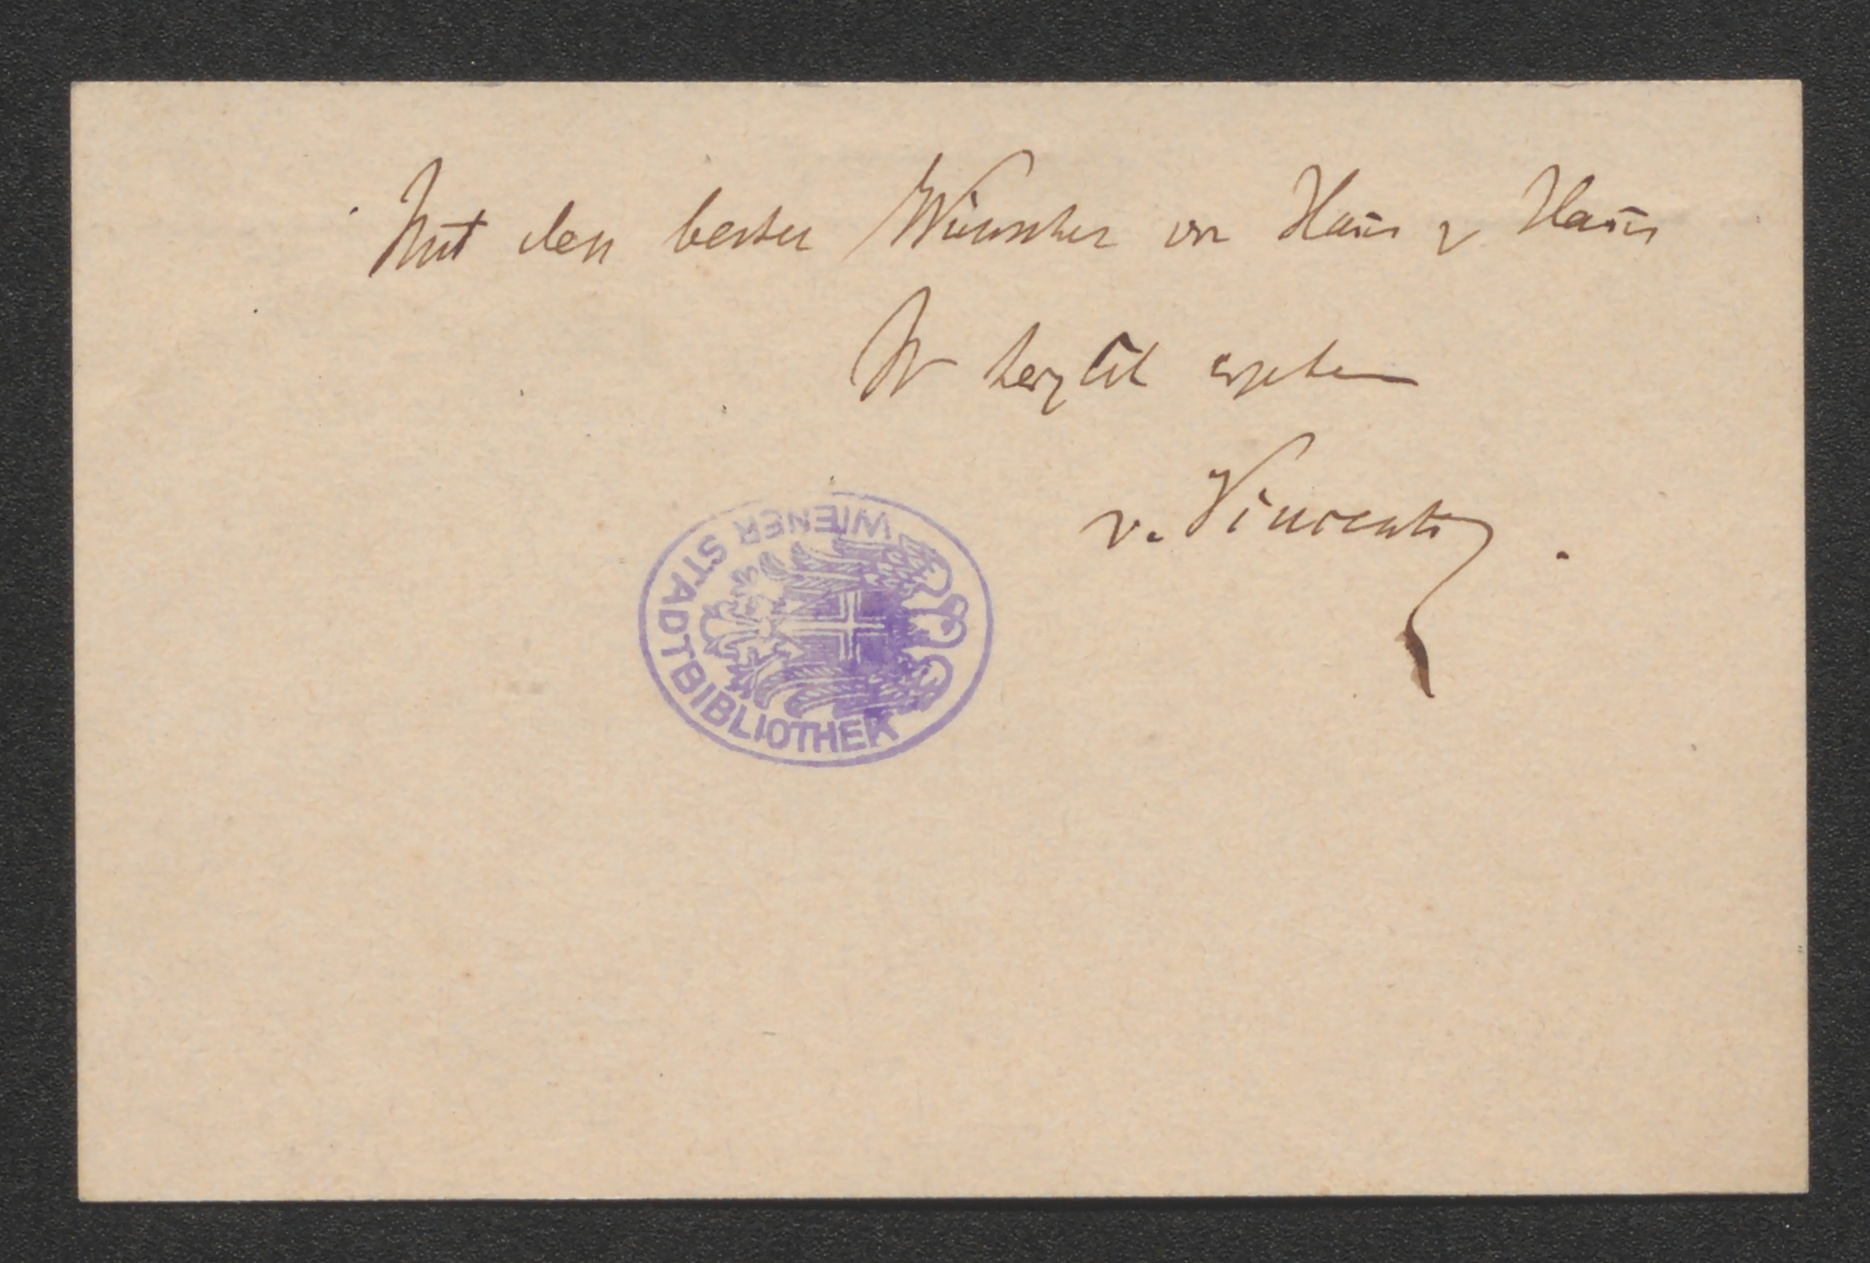 Mit den besten Wünschen von Haus z Haus
Ihr herzlich ergebener
v. Vincenti.
WIENER STADTBIBLIOTHEK